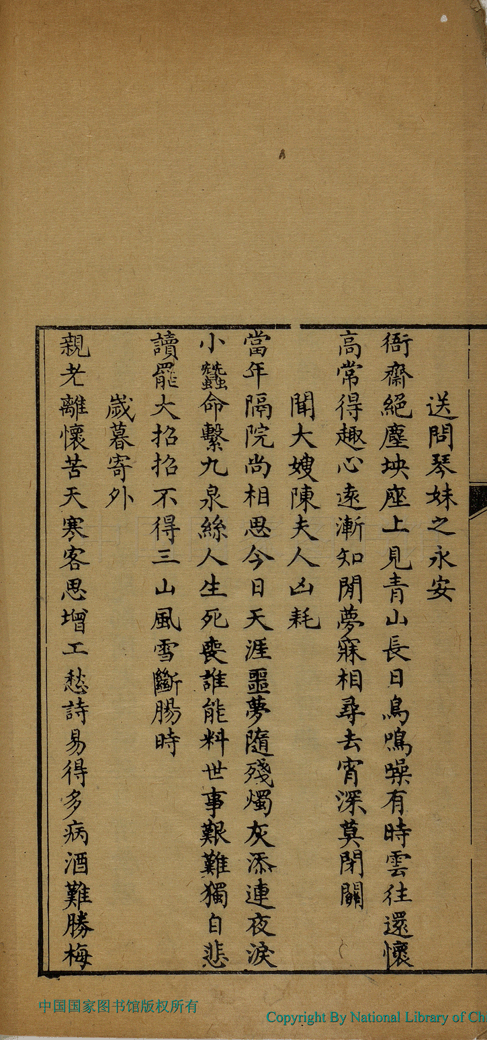 送問琴妹之永安
衙齋絕塵坱座上見青山長日鳥鳴噪有時雲往還懷
高常得趣心遠漸知閒夢寐相尋去宵深莫閉關
聞大嫂陳夫人凶耗
當年隔院尚相思今日天涯噩夢隨殘燭灰添連夜淚
小蠶命繫九泉絲人生死喪誰能料世事艱難獨自悲
讀罷大招招不得三山風雪斷腸時
歲暮寄外
親老離懷苦天寒客思增工愁詩易得多病酒難勝梅
中国国家图书馆版权所有
Copyright By National Library of Ch